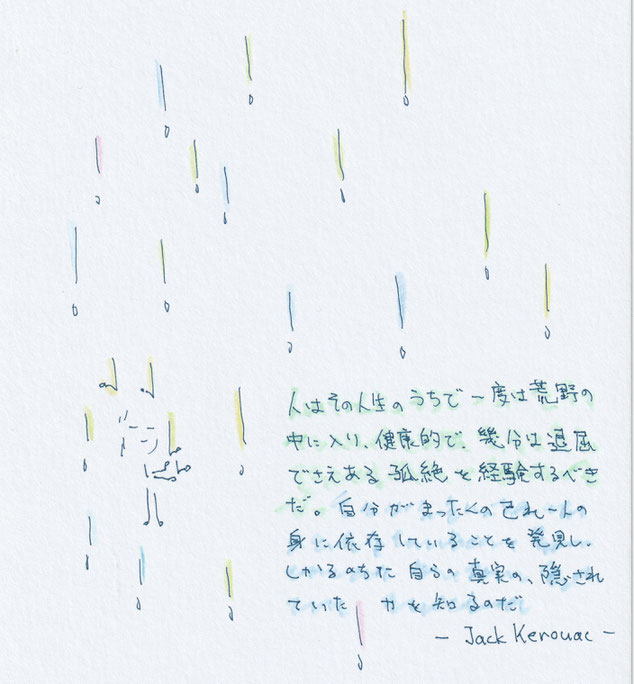 人はその人生のうちで一度は荒野の
中に入り、健康的で、幾分は退屈
でさえある孤絶を経験するべき
だ。自分がまったくの己れ一人の
身に依存していることを発見し、
しかるのちに自らの真実の、隠され
ていた 力を知るのだ
— Jack Kerouac —